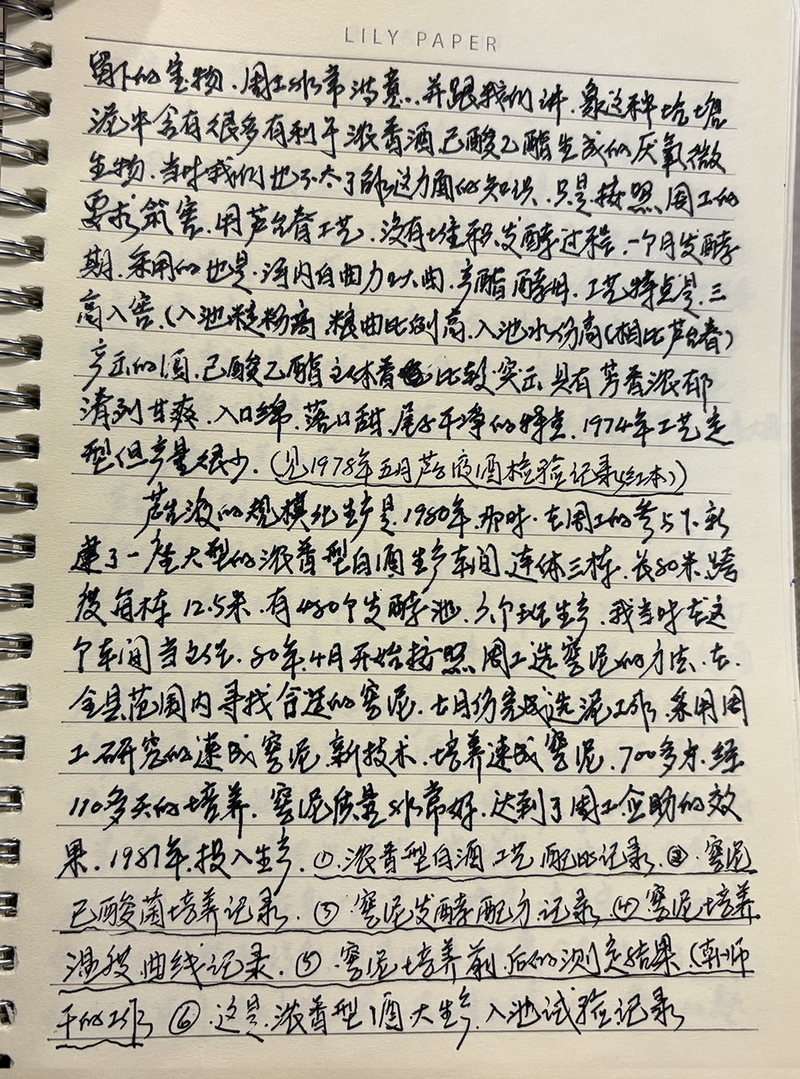 LILY PAPER
留下的生物、周工非常认真、并跟我们讲、象这种坑塘
泥中含有很多有利于浓香酒己酸乙酯生成的厌氧微
生物、当时我们也不太了解这方面的知识、只是按照周工的
要求筑窖、用芦台春工艺、没有堆积发酵过程、一个月发酵
期、采用的也是、河内白曲加大曲、产酯酵母、工艺特点是、三
高入窖、(入池粮粉高、粮曲比例高、入池水份高(相比芦台春)
产出的酒、己酸乙酯主体香比较突出、具有芳香浓郁
清冽甘爽、入口绵、落口甜、尾子干净的特点、1974年工艺定
型但产量很少、(见1978年五月芦台液酒检验记录(红本))
芦台液的规模化生产是、1980年、那时、在周工的参与下、新
建了一座大型的浓香型白酒生产车间、连体三栋、长80米、跨
度每栋12.5米、有480个发酵池、六个班生产、我当时在这
个车间当主任、80年、4月开始按照周工选窖泥的方法、在
全县范围内寻找合适的窖泥、七月份完成选泥工作、采用周
工研究的速成窖泥新技术、培养速成窖泥、700多方、经
110多天的培养、窖泥质量非常好、达到了周工企盼的效
果、1981年、投入生产、①、浓香型白酒工艺配比记录、②、窖泥
己酸菌培养记录、③、窖泥发酵配方记录、④、窖泥培养
温度曲线记录、⑤、窖泥培养前、后的测定结果、(韩师
干的工作 ⑥、这是、浓香型酒大生产、入池试验记录